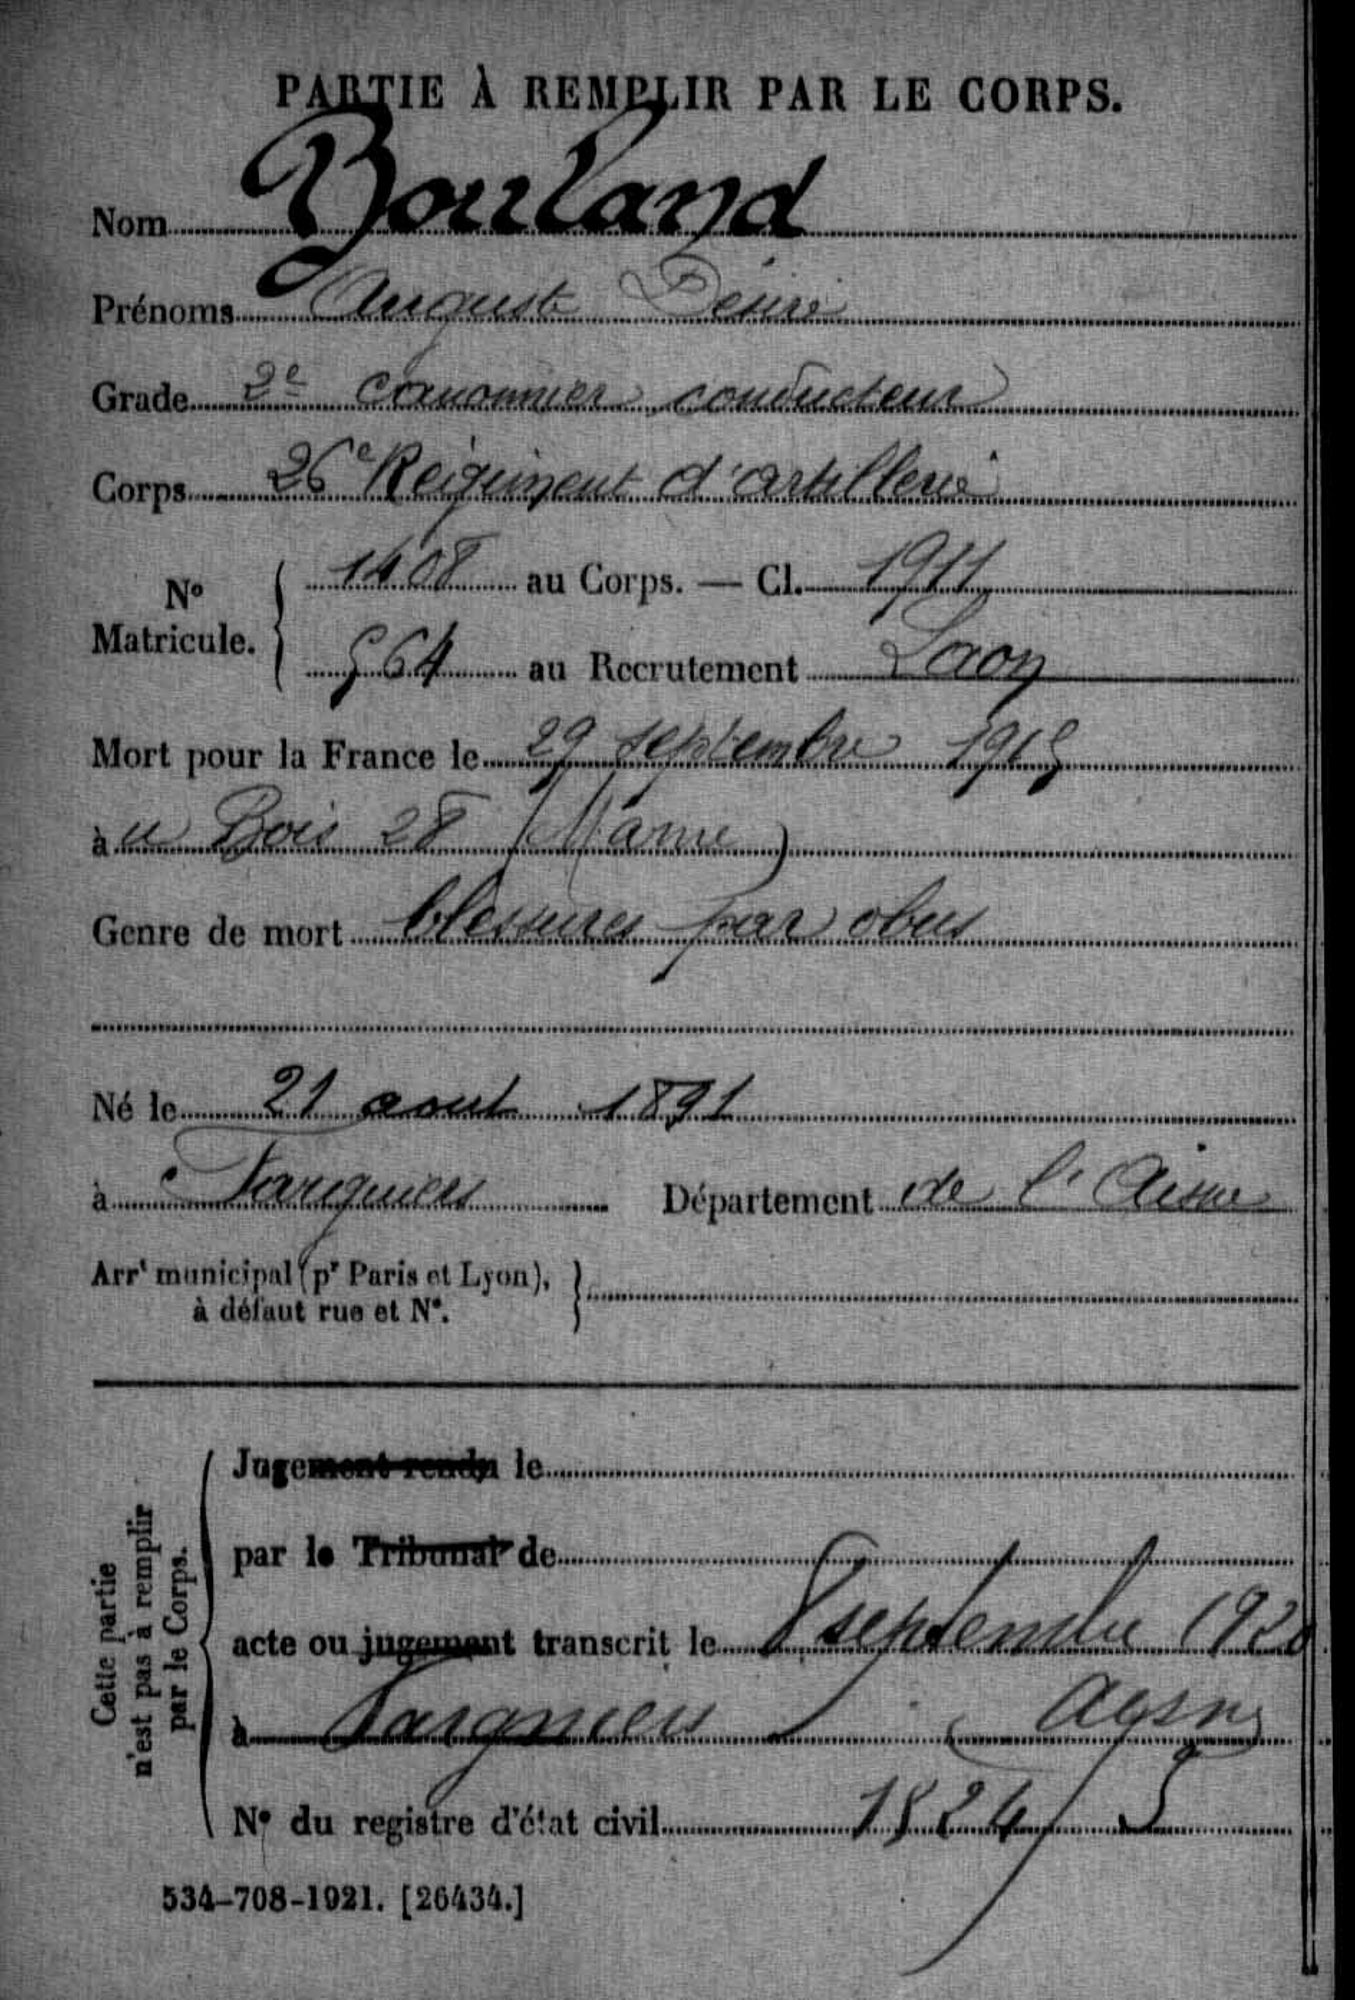 PARTIE À REMPLIR PAR LE CORPS.
Nom Bouland
Prénoms Auguste Désiré
Grade 2e canonnier conducteur
Corps 26e Régiment d'artillerie
No Matricule. { 1408 au Corps. — Cl. 1911
564 au Recrutement Laon
Mort pour la France le 29 septembre 1915
à u Bois 28 (Marne)
Genre de mort blessures par obus
Né le 21 aout 1891
à Targniers Département de l'Aisne
Arrt municipal (pr Paris et Lyon), à défaut rue et No. }
Cette partie n'est pas à remplir par le Corps.
Jugement rendu le
par le Tribunal de
acte ou jugement transcrit le 8 septembre 1920
à Targniers (Aysne)
No du registre d'état civil 1824/5
534-708-1921. [26434.]